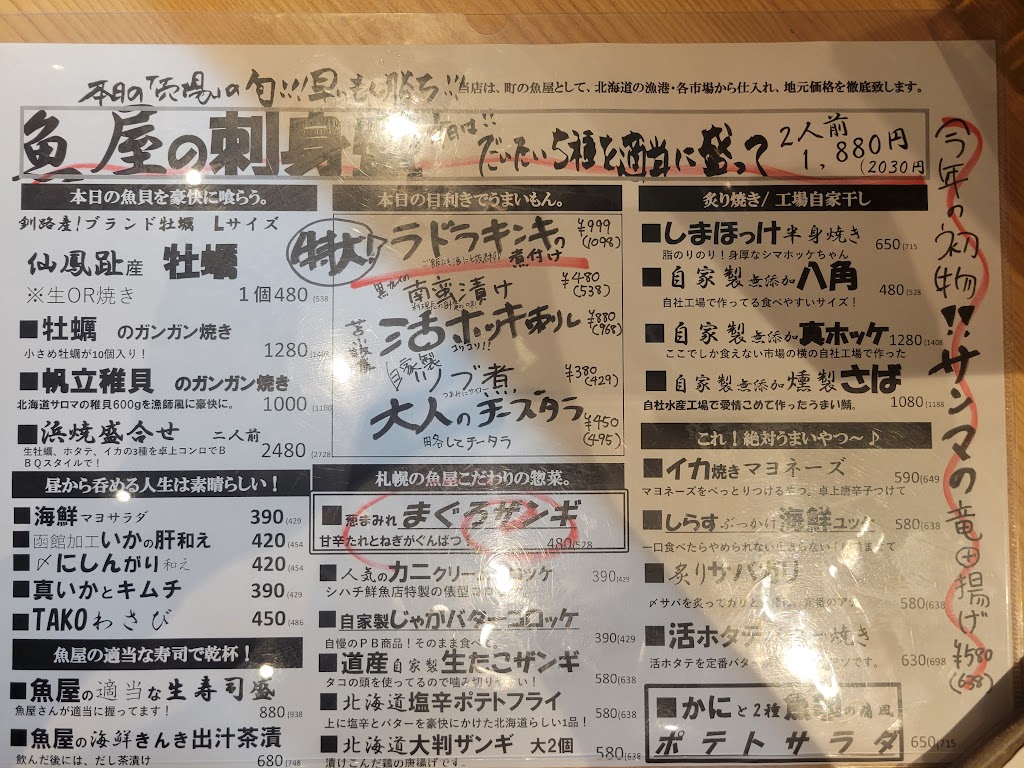 本日の「売場」の旬!!!早いもん勝ち!!!
当店は、町の魚屋として、北海道の漁港・各市場から仕入れ、地元価格を徹底致します。
魚屋の刺身
だいたい5種を適当に盛って
2人前
1,880円
(2030円
本日の魚貝を豪快に喰らう。
釧路産!ブランド牡蠣 Lサイズ
仙鳳趾産 牡蠣
※生OR焼き 1個480(538
■牡蠣 のガンガン焼き
小さめ牡蠣が10個入り! 1280(1408
■帆立稚貝 のガンガン焼き
北海道サロマの稚貝600gを漁師風に豪快に。 1000(1100
■浜焼盛合せ 二人前
生牡蠣、ホタテ、イカの3種を卓上コンロでB
BQスタイルで! 2480(2728
昼から呑める人生は素晴らしい!
■海鮮マヨサラダ 390(429
■函館加工いかの肝和え 420(454
■〆にしんがり和え 420(454
■真いかとキムチ 390(429
■TAKOわさび 450(486
魚屋の適当な寿司で乾杯!
■魚屋の適当な生寿司盛
魚屋さんが適当に握ってます! 880(938
■魚屋の海鮮きんき出汁茶漬
飲んだ後には、だし茶漬け 680(748
本日の目利きでうまいもん。
特大!
ラドラキンキの
煮付け
¥999
(1098)
南蛮漬け
¥480
(538)
苫小牧産
活ホッキ刺し
コリコリ!!
¥880
(968)
自家製
ツブ煮
¥380
(429)
大人のチーズタラ
略してチータラ
¥450
(495)
札幌の魚屋こだわりの惣菜。
■葱まみれ まぐろザンギ
甘辛たれとねぎがぐんばつ 480(528
■人気のカニクリームコロッケ 390(429
シハチ鮮魚店特製の俵型コロッケ
■自家製じゃがバターコロッケ
自慢のPB商品!そのまま食べて 390(429
■道産自家製生たこザンギ
タコの頭を使ってるので噛み切りやすい! 580(638
■北海道塩辛ポテトフライ
上に塩辛とバターを豪快にかけた北海道らしい1品! 580(638
■北海道大判ザンギ 大2個
漬けこんだ鶏の唐揚げです。 580(638
炙り焼き/工場自家干し
■しまほっけ半身焼き
脂のりのり!身厚なシマホッケちゃん 650(715
■自家製無添加八角
自社工場で作ってる食べやすいサイズ! 480(528
■自家製無添加真ホッケ
ここでしか食えない市場の横の自社工場で作った 1280(1408
■自家製無添加燻製さば
自社水産工場で愛情こめて作ったうまい鯖。 1080(1188
これ!絶対うまいやつ~♪
■イカ焼きマヨネーズ 590(649
マヨネーズをべっとりつける幸つ。卓上唐辛子つけて
■しらすぶっかけ海鮮ユッケ 580(638
一口食べたらやめられない
■炙りサバガリ
〆サバを炙ってガリと 580(638
■活ホタテバター焼き
活ホタテを定番バター 630(698
■かにと2種魚卵の痛風
ポテトサラダ 650(715
今年の初物!!サンマの竜田揚げ
¥580
(638)